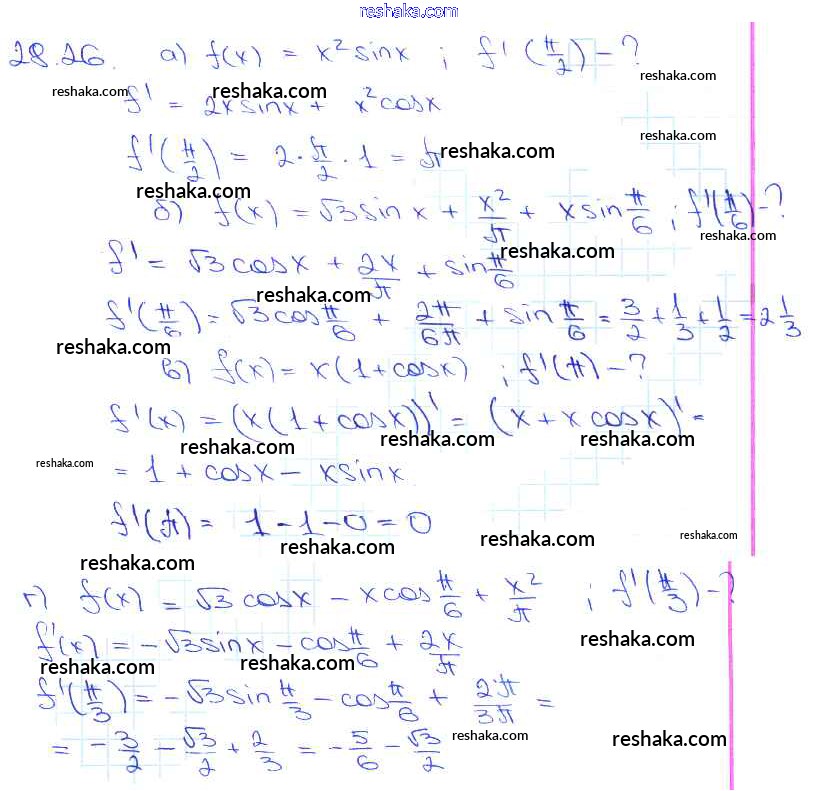 reshaka.com
28.26. а) f(x) = x² sinx ; f'(π/2) - ?
reshaka.com reshaka.com reshaka.com
f' = 2x sinx + x² cosx
reshaka.com
f'(π/2) = 2 · π/2 · 1 = π
reshaka.com
reshaka.com
б) f(x) = √3 sin x + x²/π + x sin π/6 ; f'(π/6) - ?
reshaka.com
reshaka.com
f' = √3 cosx + 2x/π + sin π/6
reshaka.com
f'(π/6) = √3 cos π/6 + 2π/6π + sin π/6 = 3/2 + 1/3 + 1/2 = 2 1/3
reshaka.com
в) f(x) = x(1 + cosx) ; f'(π) - ?
f'(x) = (x(1 + cosx))' = (x + x cosx)' =
reshaka.com reshaka.com reshaka.com
reshaka.com
= 1 + cosx - x sinx
f'(π) = 1 - 1 - 0 = 0
reshaka.com reshaka.com reshaka.com
reshaka.com
г) f(x) = √3 cosx - x cos π/6 + x²/π ; f'(π/3) - ?
reshaka.com
f'(x) = -√3 sinx - cos π/6 + 2x/π
reshaka.com reshaka.com
f'(π/3) = -√3 sin π/3 - cos π/6 + 2π/3π =
reshaka.com reshaka.com
= -3/2 - √3/2 + 2/3 = -5/6 - √3/2